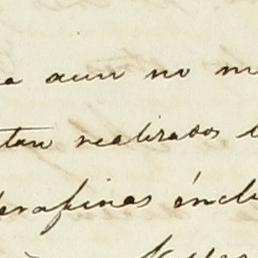 a aun no m
tan realizados l
erafinas énclu